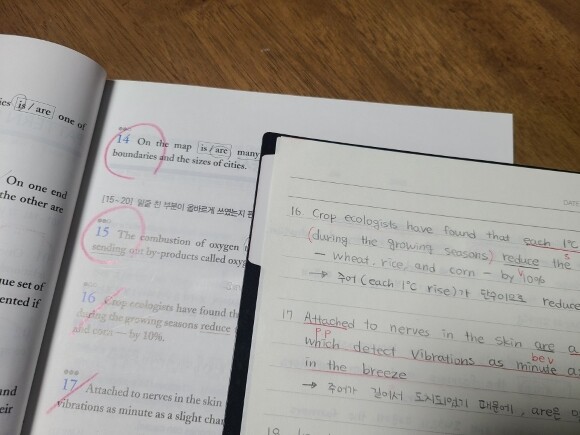 ies is / are one of
On one end
the other are
ue set of
ented if
and
eir
14 On the map is / are many
boundaries and the sizes of cities.
[15~20] 밑줄 친 부분이 올바르게 쓰였는지
15 The combustion of oxygen
sending out by-products called oxy
16 Crop ecologists have found th
during the growing seasons reduce
and corn — by 10%.
17 Attached to nerves in the skin
vibrations as minute as a slight cha
DATE
16. Crop ecologists have found that each 1°C
(during the growing seasons) reduce the
s
— wheat, rice, and corn — by 10%
v
→ 주어 (each 1°C rise)가 단수이므로 reduce
17. Attached to nerves in the skin are a
P.P
which detect vibrations as minute as
be v
in the breeze
→ 주어가 길어서 도치되었기 때문에, are은